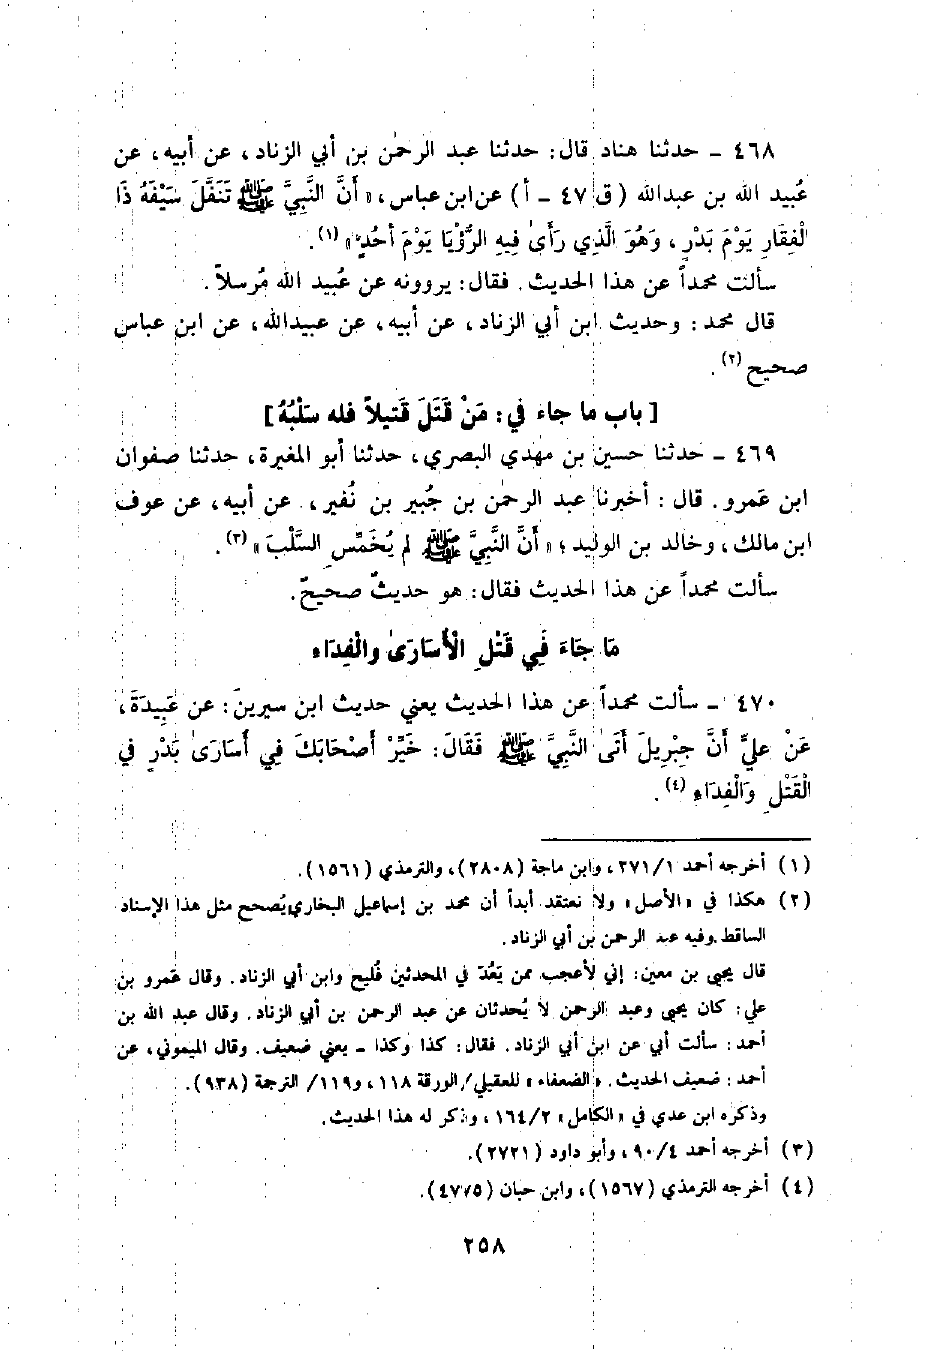 ٤٦٨ ـ حدثنا هناد قال: حدثنا عبد الرحمٰن بن أبي الزناد، عن أبيه، عن
عُبيد الله بن عبدالله (ق ٤٧ ـ أ) عن ابن عباس، «أَنَّ النَّبِيَّ ﷺ تَنَفَّلَ سَيْفَهُ ذَا
الْفِقَارِ يَوْمَ بَدْرٍ، وَهُوَ الَّذِي رَأَىٰ فِيهِ الرُّؤْيَا يَوْمَ أُحُدٍ» (١).
سألت محمداً عن هذا الحديث. فقال: يروونه عن عُبيد الله مُرسلاً.
قال محمد: وحديث ابن أبي الزناد، عن أبيه، عن عبيدالله، عن ابن عباس
صحيح (٢).
[باب ما جاء في: مَنْ قَتَلَ قَتيلاً فله سَلْبُهُ]
٤٦٩ ـ حدثنا حسين بن مهدي البصري، حدثنا أبو المغيرة، حدثنا صفوان
ابن عَمرو. قال: أخبرنا عبد الرحمٰن بن جُبير بن نُفير، عن أبيه، عن عوف
ابن مالك، وخالد بن الوليد؛ «أَنَّ النَّبِيَّ ﷺ لم يُخَمِّسِ السَّلْبَ» (٣).
سألت محمداً عن هذا الحديث فقال: هو حديثٌ صحيحٌ.
مَا جَاءَ فِي قَتْلِ الْأَسَارَىٰ والْفِدَاء
٤٧٠ ـ سألت محمداً عن هذا الحديث يعني حديث ابن سيرين: عن عَبِيدَةَ،
عَنْ عليٍّ أَنَّ جِبْرِيلَ أَتَىٰ النَّبِيَّ ﷺ فَقَالَ: خَيِّرْ أَصْحَابَكَ فِي أَسَارَىٰ بَدْرٍ في
الْقَتْلِ وَالْفِدَاءِ (٤).
(١) أخرجه أحمد ٢٧١/١، وابن ماجة (٢٨٠٨)، والترمذي (١٥٦١).
(٢) هكذا في «الأصل» ولا نعتقد أبداً أن محمد بن إسماعيل البخاري يُصحح مثل هذا الإسناد
الساقط وفيه عبد الرحمن بن أبي الزناد.
قال يحيى بن معين: إني لأعجب ممن يَعُدّ في المحدثين فُليح وابن أبي الزناد. وقال عَمرو بن
علي: كان يحيى وعبد الرحمن لا يُحدثان عن عبد الرحمن بن أبي الزناد. وقال عبد الله بن
أحمد: سألت أبي عن ابن أبي الزناد. فقال: كذا وكذا ـ يعني ضعيف. وقال الميموني، عن
أحمد: ضعيف الحديث. «الضعفاء» للعقيلي/ الورقة ١١٨، و١١٩/ الترجمة (٩٣٨).
وذكره ابن عدي في «الكامل» ١٦٤/٢، وذكر له هذا الحديث.
(٣) أخرجه أحمد ٩٠/٤، وأبو داود (٢٧٢١).
(٤) أخرجه الترمذي (١٥٦٧)، وابن حبان (٤٧٧٥).
٢٥٨